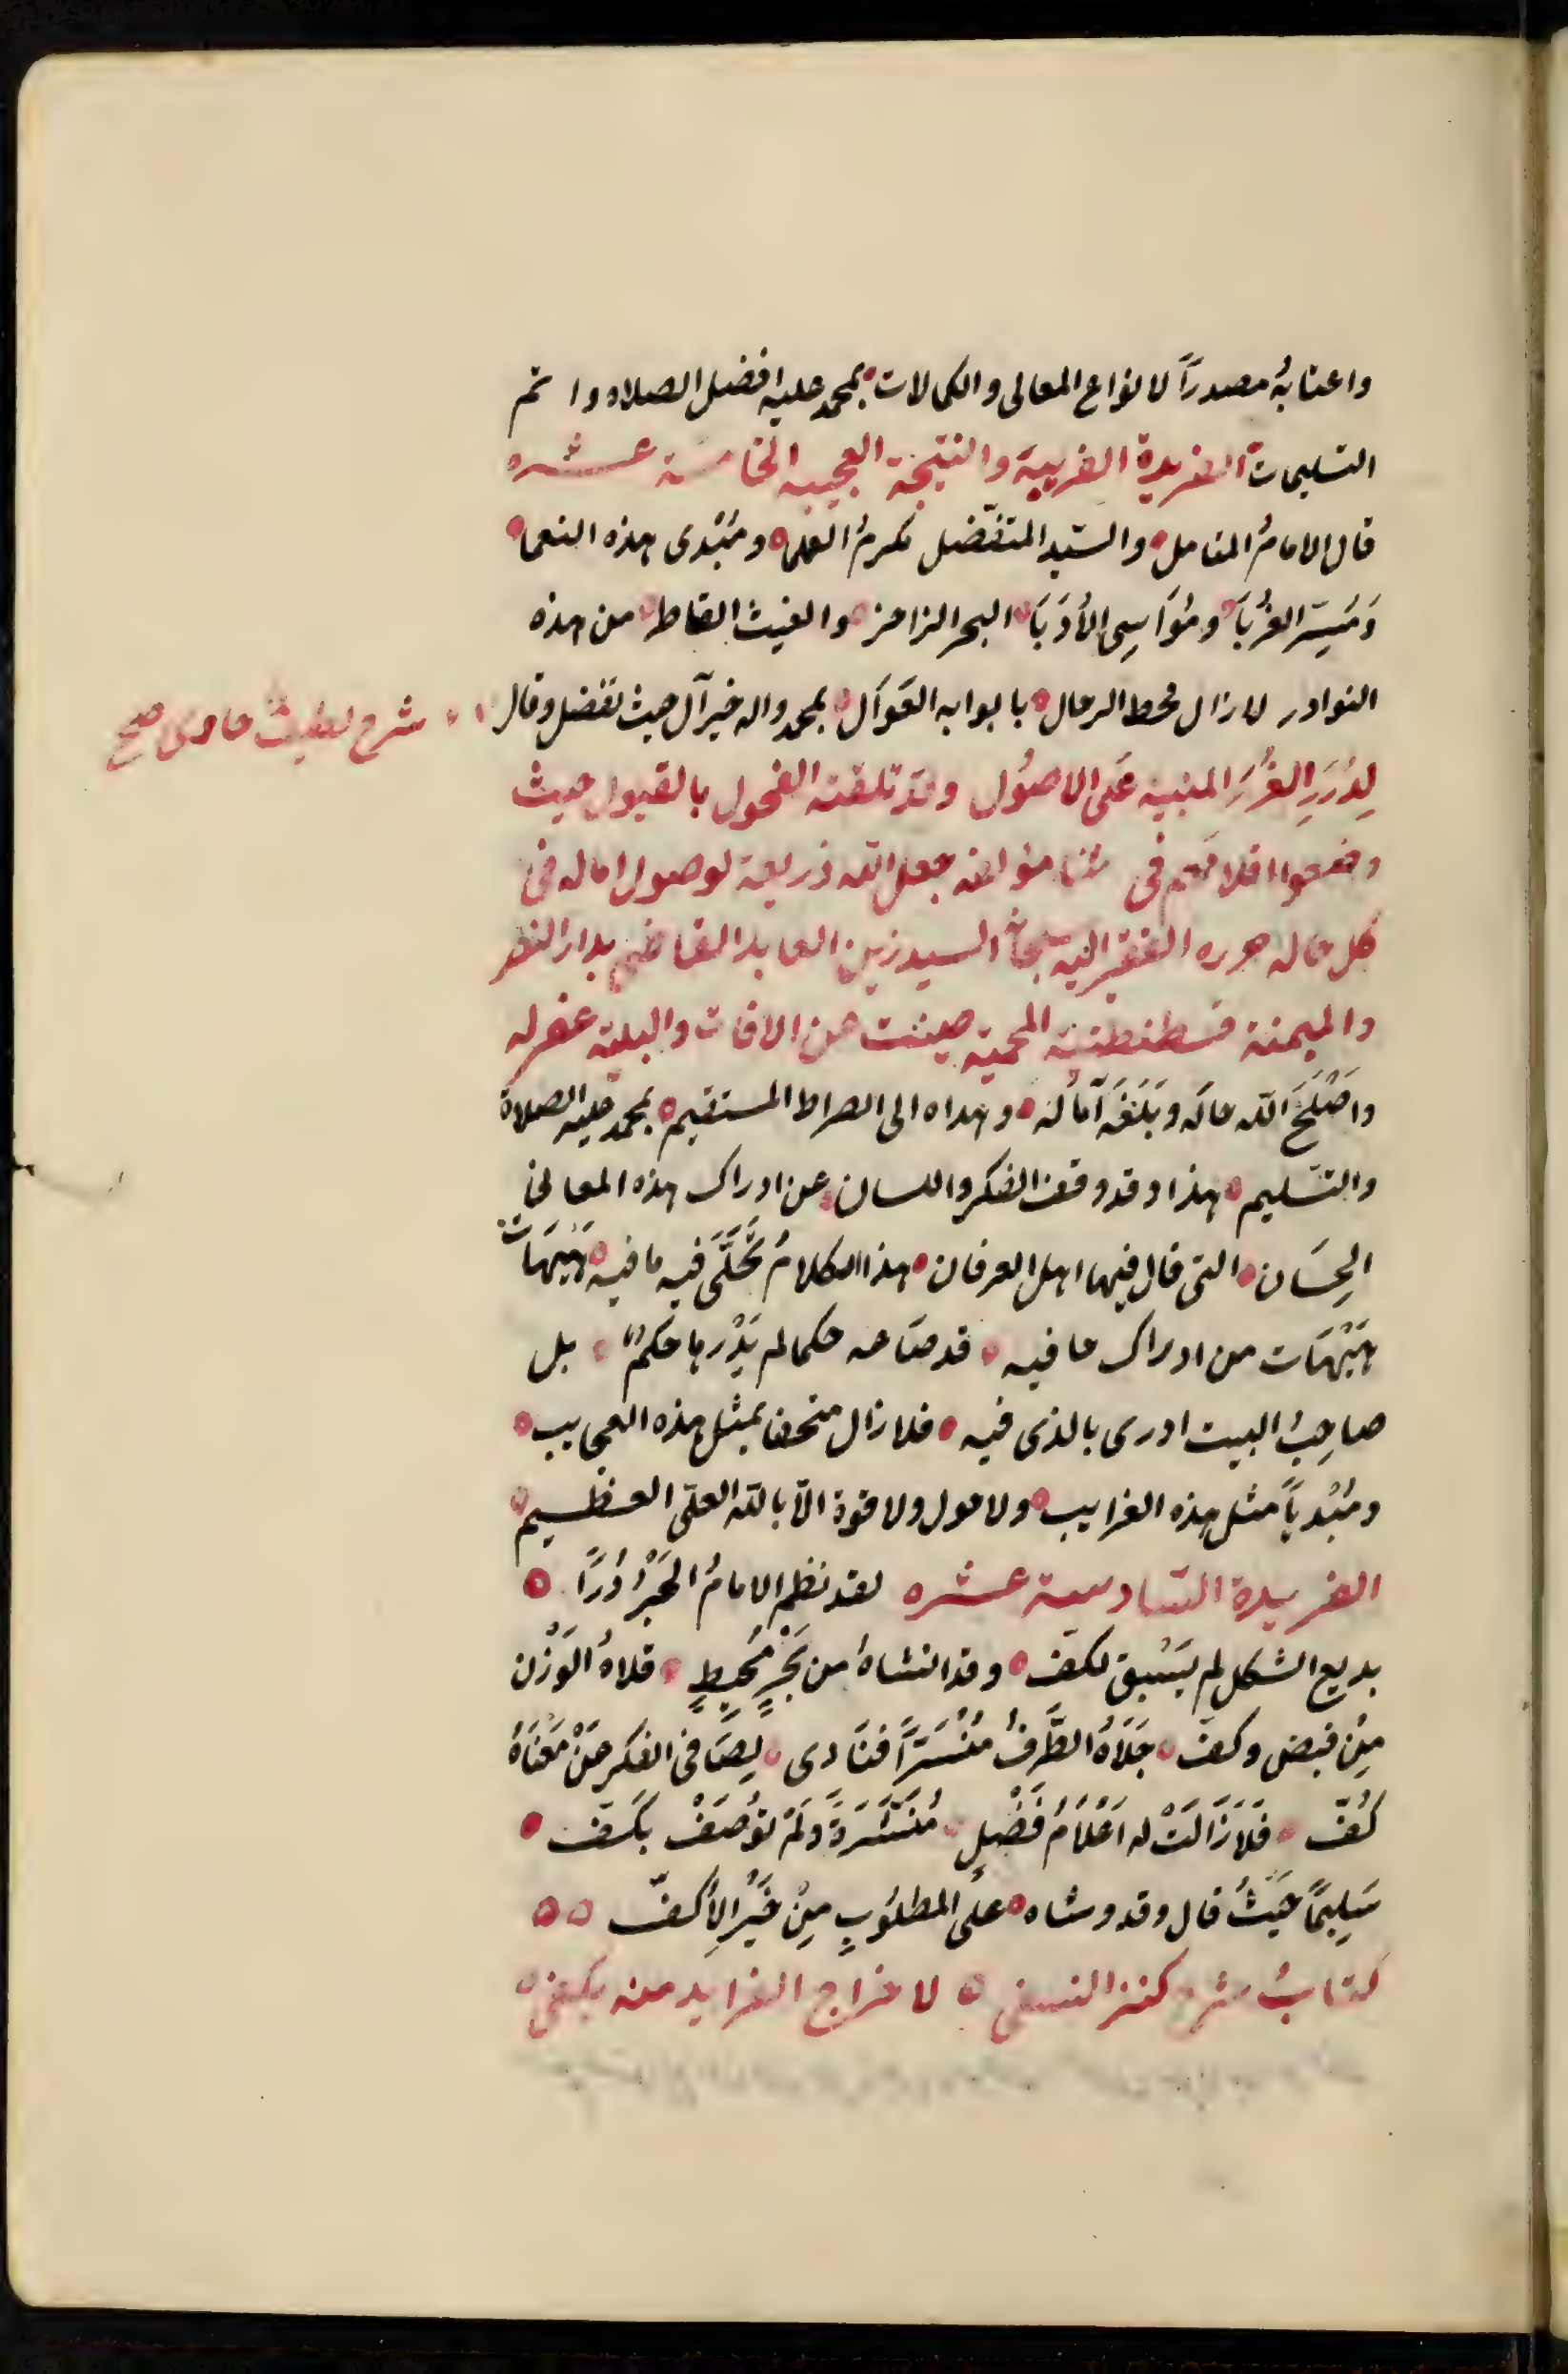 واعتابهُ مصدرًا لانواع المعالى والكمالات بمحمد عليه افضل الصلاه واتم
التسليمات الفريدة الغريبة والنتيجة العجيبه الخامسة عشره
قال الامامُ الفاضل والسّيد المتفضّل مكرمُ العلما ومُبْدى هذه النعما
وَمُيَسِّر الغُرَبَا ومُوَاسِى الأُدَبَا البحر الزاخر والغيث القاطر من هذه
النوادر لازال محط الرحال بابوابه العَوَال بمحمد واله خير آل حيث تفضل وقال
شرح لطيف حاوى صح
لِدُرَرِ الغُرَرَ المنبيه عَلى الاصُول وقد تلقته الفحول بالقبول حيث
وضعوا اقلامهم فى ثنا مؤلفه جعل الله ذريعة لوصول اماله فى
كل حاله حرره الفقير اليه السيد زين العابد القاضى بدار النصر
والميمنة قسطنطنية المحمية صينت عن الافات والبلية غفر له
واصْلَحَ الله حاله وبَلَّغَه آمَالُه وهداه الى الصراط المستقيم بمحمد عليه الصلاة
والتسليم هذا وقد وقف الفكر واللسان عن ادراك هذه المعانى
الحِسَان التى قال فيها اهل العرفان هذا الكلامُ تَحَلَّى فيه ما فيه هَيْهَات
هَيْهَات من ادراك ما فيه قد صاحه حكما لم يَدْرِها حكمٌ بل
صاحِبُ البيت ادرى بالذى فيه فلازال متحفا بمثل هذه العجايب
ومُبْدِياً مثل هذه الغرايب ولا حول ولا قوة الّا بالله العلى العظيم
الفريدة السّادسة عشره لقد نظم الامامُ الحَبْرُ دُرًّا
بديع الشكل لم يَسْبق لكفّ وقد انشاهُ من بَحْرٍ مُحيطٍ قلاهُ الوَزْن
مِنْ قبض وكفّ جَلَاهُ الطَّرفُ مُنْسَرّاً فنَادى لِصَافى الفكر عَنْ مَعْنَاهُ
كُفّ فَلَا زَالَتْ له اَعْلَامُ فَضْلٍ مُنَشَّرَةً وَلَمْ تُوصَفْ بكَفّ
سَلِيماً حَيْثُ قال وقد وشاه على المطلُوبِ مِنْ خَيْرِ الأَكفّ
كتابُ شرح كنز النسفى لاخراج الفرايد منه يكفى